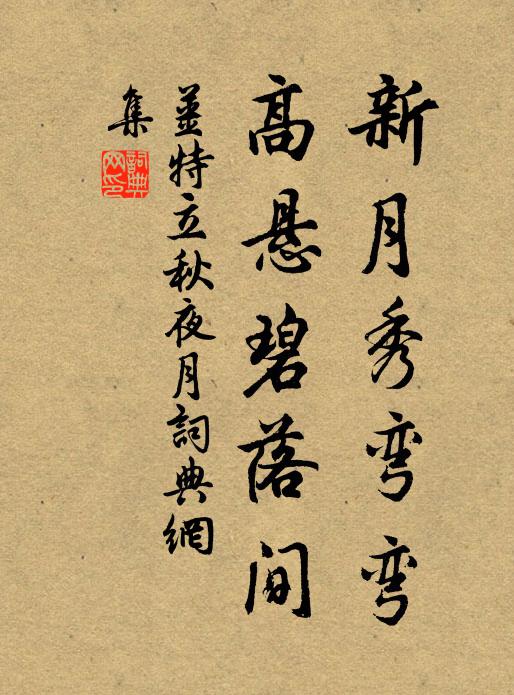 新月秀弯弯
高悬碧落间
姜特立秋夜月詞典網
集
詞典网印